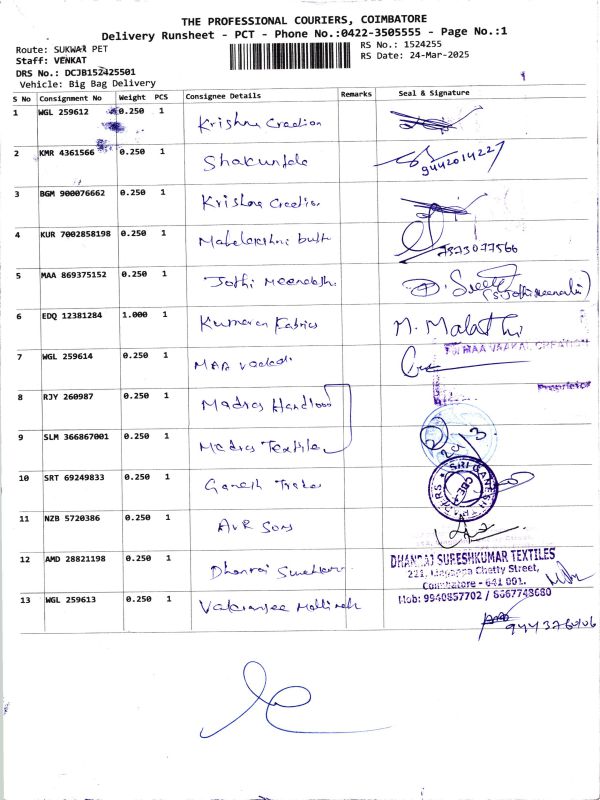 THE PROFESSIONAL COURIERS, COIMBATORE
Delivery Runsheet - PCT - Phone No.:0422-3505555 - Page No.:1
Route: SUKWAR PET
RS No.: 1524255
Staff: VENKAT
RS Date: 24-Mar-2025
DRS No.: DCJB152425501
Vehicle: Big Bag Delivery
S No Consignment No Weight PCS Consignee Details Remarks Seal & Signature
1 WGL 259612 0.250 1 Krishna Creation
2 KMR 4361566 0.250 1 Shakuntala 9442014227
3 BGM 900076662 0.250 1 Krishna Creation
4 KUR 7002858198 0.250 1 Mahalakshmi 7373077566
5 MAA 869375152 0.250 1 Jothi Meenakshi (S. Jothimeenakshi)
6 EDQ 12381284 1.000 1 Kumaran Fabrics M. Malathi
7 WGL 259614 0.250 1 MAA
MAA VAAKAI CREATION
Proprietor
8 RJY 260987 0.250 1 Madras Handloom
9 SLM 366867001 0.250 1 Madras Textiles
10 SRT 69249833 0.250 1 Ganesh SRI GANESH CBE-1
11 NZB 5720386 0.250 1 AVR Sons
12 AMD 28821198 0.250 1 Dhanraj
DHANRAJ SURESHKUMAR TEXTILES
221, Lingappa Chetty Street,
Coimbatore - 641 001.
Mob: 9940857702 / 8667748680
13 WGL 259613 0.250 1